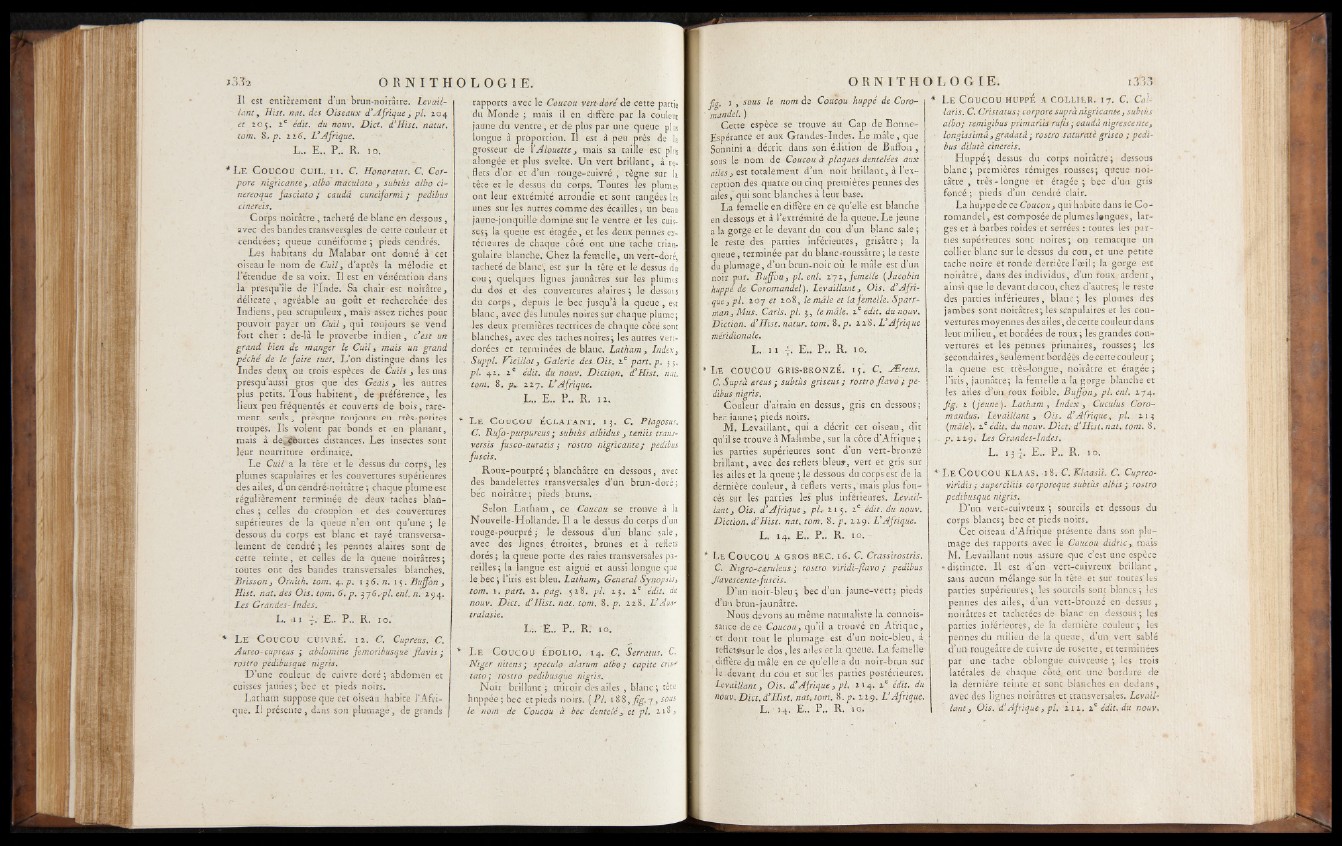 1332
ORNITHOLOGIE.
Il est entièrement d'un brun-noirâtre. Levail-
lant, Hist. nat. des Oiseaux d'Afrique, pl. 204
et 205. 2e édit. du nouv. Dict. d'Hist. natur.
tom. 8. p. 226. L'Afrique.
L.. E.. P.. R. 10.
* LE COUCOU CUIL. 11. C. Honoratus. C. Cor-
pore nigricante, albo maculato, subtùs albo ci-
nereoque fasciato; caudâ cuneiformi; pedibus
cinereis.
Corps noirâtre, tacheté de blanc en dessous,
avec des bandes transversales de cette couleur et
cendrées; queue cunéiforme; pieds cendrés.
Les habitans du Malabar ont donné à cet
oiseau le nom de Cuil, d'après la mélodie et
l'étendue de sa voix. Il est en vénération dans
la presqu'île de l'Inde. Sa chair est noirâtre,
délicate, agréable au goût et recherchée des
Indiens, peu scrupuleux, mais assez riches pour
pouvoir payer un Cuil, qui toujours se vend
fort cher: de-là le proverbe indien, c'est un
grand bien de manger le Cuil, mais un grand
péché de le faire tuer. L'on distingue dans les
Indes deux ou trois espèces de Cuils, les uns
presqu'aussi gros que des Geais, les autres
plus petits. Tous habitent, de préférence, les
lieux peu fréquentés et couverts de bois, rare-
ment seuls, presque toujours en très-petites
troupes. Ils volent par bonds et en planant,
mais à de courtes distances. Les insectes sont
leur nourriture ordinaire.
Le Cuil a la tête et le dessus du corps, les
plumes scapulaires et les couvertures supérieures
des ailes, d'un cendré-noirâtre; chaque plume est
régulièrement terminée de deux taches blan-
ches; celles du croupion et des couvertures
supérieures de la queue n'en ont qu'une; le
dessous du corps est blanc et rayé transversa-
lement de cendré; les pennes alaires sont de
cette teinte, et celles de la queue noirâtres;
toutes ont des bandes transversales blanches.
Brisson, Ornith. tom. 4. p. 136. n. 15. Buffon,
Hist. nat. des Ois. tom. 6. p. 376. pl. enl. n. 294.
Les Grandes-Indes.
L. 11 ½. E.. P.. R. 10.
* LE COUCOU CUIVRÉ. 12. C. Cupreus. C.
Aureo-cupreus; abdomine femoribusque flavis;
rostro pedibusque nigris.
D'une couleur de cuivre doré; abdomen et
cuisses jaunes; bec et pieds noirs.
Latham suppose que cet oiseau habite l'Afri-
que. Il présente, dans son plumage, de grands
rapports avec le Coucou vert-doré de cette partie
du Monde; mais il en diffère par la couleur
jaune du ventre, et de plus par une queue plus
longue à proportion. Il est à peu près de la
grosseur de l'Alouette, mais sa taille est plus
alongée et plus svelte. Un vert brillant, à re-
flets d'or et d'un rouge-cuivré, règne sur la
tête et le dessus du corps. Toutes les plumes
ont leur extrémité arrondie et sont rangées les
unes sur les autres comme des écailles; un beau
jaune-jonquille domine sur le ventre et les cuis-
ses; la queue est étagée, et les deux pennes ex-
térieures de chaque côté ont une tache trian-
gulaire blanche. Chez la femelle, un vert-doré,
tacheté de blanc, est sur la tête et le dessus du
cou; quelques lignes jaunâtres sur les plumes
du dos et des couvertures alaires; le dessous
du corps, depuis le bec jusqu'à la queue, est
blanc, avec des lunules noires sur chaque plume;
les deux premières rectrices de chaque côté sont
blanches, avec des taches noires; les autres vert-
dorées et terminées de blanc. Latham, Index,
Suppl. Vieillot, Galerie des Ois. 2e part. p. 35.
pl. 42. 2e édit. du nouv. Diction. d'Hist. nat.
tom. 8. p. 227. L'Afrique.
L.. E.. P.. R. 12.
* LE COUCOU ÉCLATANT. 13. C. Plagosus.
C. Rufo-purpureus; subtùs albidus, tæniis trans-
versis fusco-auratis; rostro nigricante; pedibus
fuscis.
Roux-pourpré; blanchâtre en dessous, avec
des bandelettes transversales d'un brun-doré;
bec noirâtre; pieds bruns.
Selon Latham, ce Coucou se trouve à la
Nouvelle-Hollande. Il a le dessus du corps d'un
rouge-pourpré; le dessous d'un blanc sale,
avec des lignes étroites, brunes et à reflets
dorés; la queue porte des raies transversales pa-
reilles; la langue est aiguë et aussi longue que
le bec; l'iris est bleu. Latham, General Synopsis,
tom. 1. part. 2. pag. 528. pl. 23. 2e édit. de
nouv. Dict. d'Hist. nat. tom. 8. p. 228. L'Aus-
tralasie.
L.. E.. P.. R. 10.
* LE COUCOU ÉDOLIO. 14. C. Serratus. C.
Niger nitens; speculo alarum albo; capite cris-
tato; rostro pedibusque nigris.
Noir brillant; miroir des ailes, blanc; tête
huppée; bec et pieds noirs. (Pl. 188, fig. 7, sous
le nom de Coucou à bec dentelé, et pl. 218,
ORNITHOLOGIE.
1333
fig. 1, sous le nom de Coucou huppé de Coro-
mandel.)
Cette espèce se trouve au Cap de Bonne-
Espérance et aux Grandes-Indes. Le mâle, que
Sonnini a décrit dans son édition de Buffon,
sous le nom de Coucou à plaques dentelées aux
ailes, est totalement d'un noir brillant, à l'ex-
ception des quatre ou cinq premières pennes des
ailes, qui sont blanches à leur base.
La femelle en diffère en ce qu'elle est blanche
en dessous et à l'extrémité de la queue. Le jeune
a la gorge et le devant du cou d'un blanc sale;
le reste des parties inférieures, grisâtre; la
queue, terminée par du blanc-roussâtre; le reste
du plumage, d'un brun-noir où le mâle est d'un
noir pur. Buffon, pl. enl. 272, femelle (Jacobin
huppé de Coromandel). Levaillant, Ois. d'Afri-
que, pl. 207 et 208, le mâle et la femelle. Sparr-
man, Mus. Carls. pl. 3, le mâle. 2e édit. du nouv.
Diction. d'Hist. natur. tom. 8. p. 228. L'Afrique
méridionale.
L. 11 ½. E.. P.. R. 10.
* LE COUCOU GRIS-BRONZÉ. 15. C. Æreus.
C. Suprà æreus; subtùs griseus; rostro flavo; pe-
dibus nigris.
Couleur d'airain en dessus, gris en dessous;
bec jaune; pieds noirs.
M. Levaillant, qui a décrit cet oiseau, dit
qu'il se trouve à Malimbe, sur la côte d'Afrique;
les parties supérieures sont d'un vert-bronzé
brillant, avec des reflets bleus, vert et gris sur
les ailes et la queue; le dessous du corps est de la
dernière couleur, à reflets verts, mais plus fon-
cés sur les parties les plus inférieures. Levail-
lant, Ois. d'Afrique, pl. 215. 2e édit. du nouv.
Diction. d'Hist. nat. tom. 8. p. 229. L'Afrique.
L. 14. E.. P.. R. 10.
* LE COUCOU A GROS BEC. 16. C. Crassirostris.
C. Nigro-cæruleus; rostro viridi-flavo; pedibus
flavescente-fuscis.
D'un noir-bleu; bec d'un jaune-vert; pieds
d'un brun-jaunâtre.
Nous devons au même naturaliste la connois-
sance de ce Coucou, qu'il a trouvé en Afrique,
et dont tout le plumage est d'un noir-bleu, à
reflets sur le dos, les ailes et la queue. La femelle
diffère du mâle en ce qu'elle a du noir-brun sur
le devant du cou et sur les parties postérieures.
Levaillant, Ois. d'Afrique, pl. 214. 2e édit. du
nouv. Dict. d'Hist. nat. tom. 8. p. 229. L'Afrique.
L. 14. E.. P.. R. 10.
* LE COUCOU HUPPÉ A COLLIER. 17. C. Col-
laris. C. Cristatus; corpore suprà nigricante, subtùs
albo; remigibus primariis rufis; caudâ nigrescente,
longissimâ, gradatâ; rostro saturatè griseo; pedi-
bus dilutè cinereis.
Huppé; dessus du corps noirâtre; dessous
blanc; premières rémiges rousses; queue noi-
râtre, très-longue et étagée; bec d'un gris
foncé; pieds d'un cendré clair.
La huppe de ce Coucou, qui habite dans le Co-
romandel, est composée de plumes longues, lar-
ges et à barbes roides et serrées: toutes les par-
ties supérieures sont noires; on remarque un
collier blanc sur le dessus du cou, et une petite
tache noire et ronde derrière l'œil; la gorge est
noirâtre, dans des individus, d'un roux ardent,
ainsi que le devant du cou, chez d'autres; le reste
des parties inférieures, blanc; les plumes des
jambes sont noirâtres; les scapulaires et les cou-
vertures moyennes des ailes, de cette couleur dans
leur milieu, et bordées de roux; les grandes cou-
vertures et les pennes primaires, rousses; les
secondaires, seulement bordées de cette couleur;
la queue est très-longue, noirâtre et étagée;
l'iris, jaunâtre; la femelle a la gorge blanche et
les ailes d'un roux foible. Buffon, pl. enl. 274.
fig. 2 (jeune). Latham, Index, Cuculus Coro-
mandus. Levaillant, Ois. d'Afrique, pl. 213
(mâle). 2e édit. du nouv. Dict. d'Hist. nat. tom. 8.
p. 229. Les Grandes-Indes.
L. 13 ½. E.. P.. R. 10.
* LE COUCOU KLAAS. 18. C. Klaasii. C. Cupreo-
viridis; superciliis corporeque subtùs albis; rostro
pedibusque nigris.
D'un vert-cuivreux; sourcils et dessous du
corps blancs; bec et pieds noirs.
Cet oiseau d'Afrique présente dans son plu-
mage des rapports avec le Coucou didric, mais
M. Levaillant nous assure que c'est une espèce
distincte. Il est d'un vert-cuivreux brillant,
sans aucun mélange sur la tête et sur toutes les
parties supérieures; les sourcils sont blancs; les
pennes des ailes, d'un vert-bronzé en dessus,
noirâtres et tachetées de blanc en dessous; les
parties inférieures, de la dernière couleur; les
pennes du milieu de la queue, d'un vert sablé
d'un rougeâtre de cuivre de rosette, et terminées
par une tache oblongue cuivreuse; les trois
latérales de chaque côté, ont une bordure de
la dernière teinte et sont blanches en dedans,
avec des lignes noirâtres et transversales. Levail-
lant, Ois. d'Afrique, pl. 212. 2e édit. du nouv.